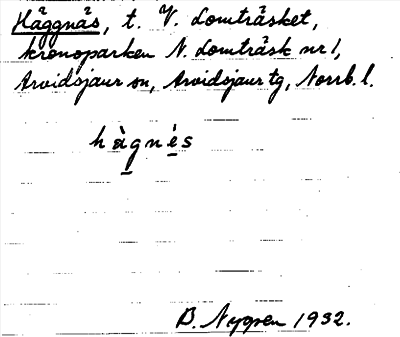 Häggnäs, t. V. Lomträsket,
kronoparken N. Lomträsk nr 1,
Arvidsjaur sn, Arvidsjaur tg, Norrb. l.
hàgnès
B. Nygren 1932.